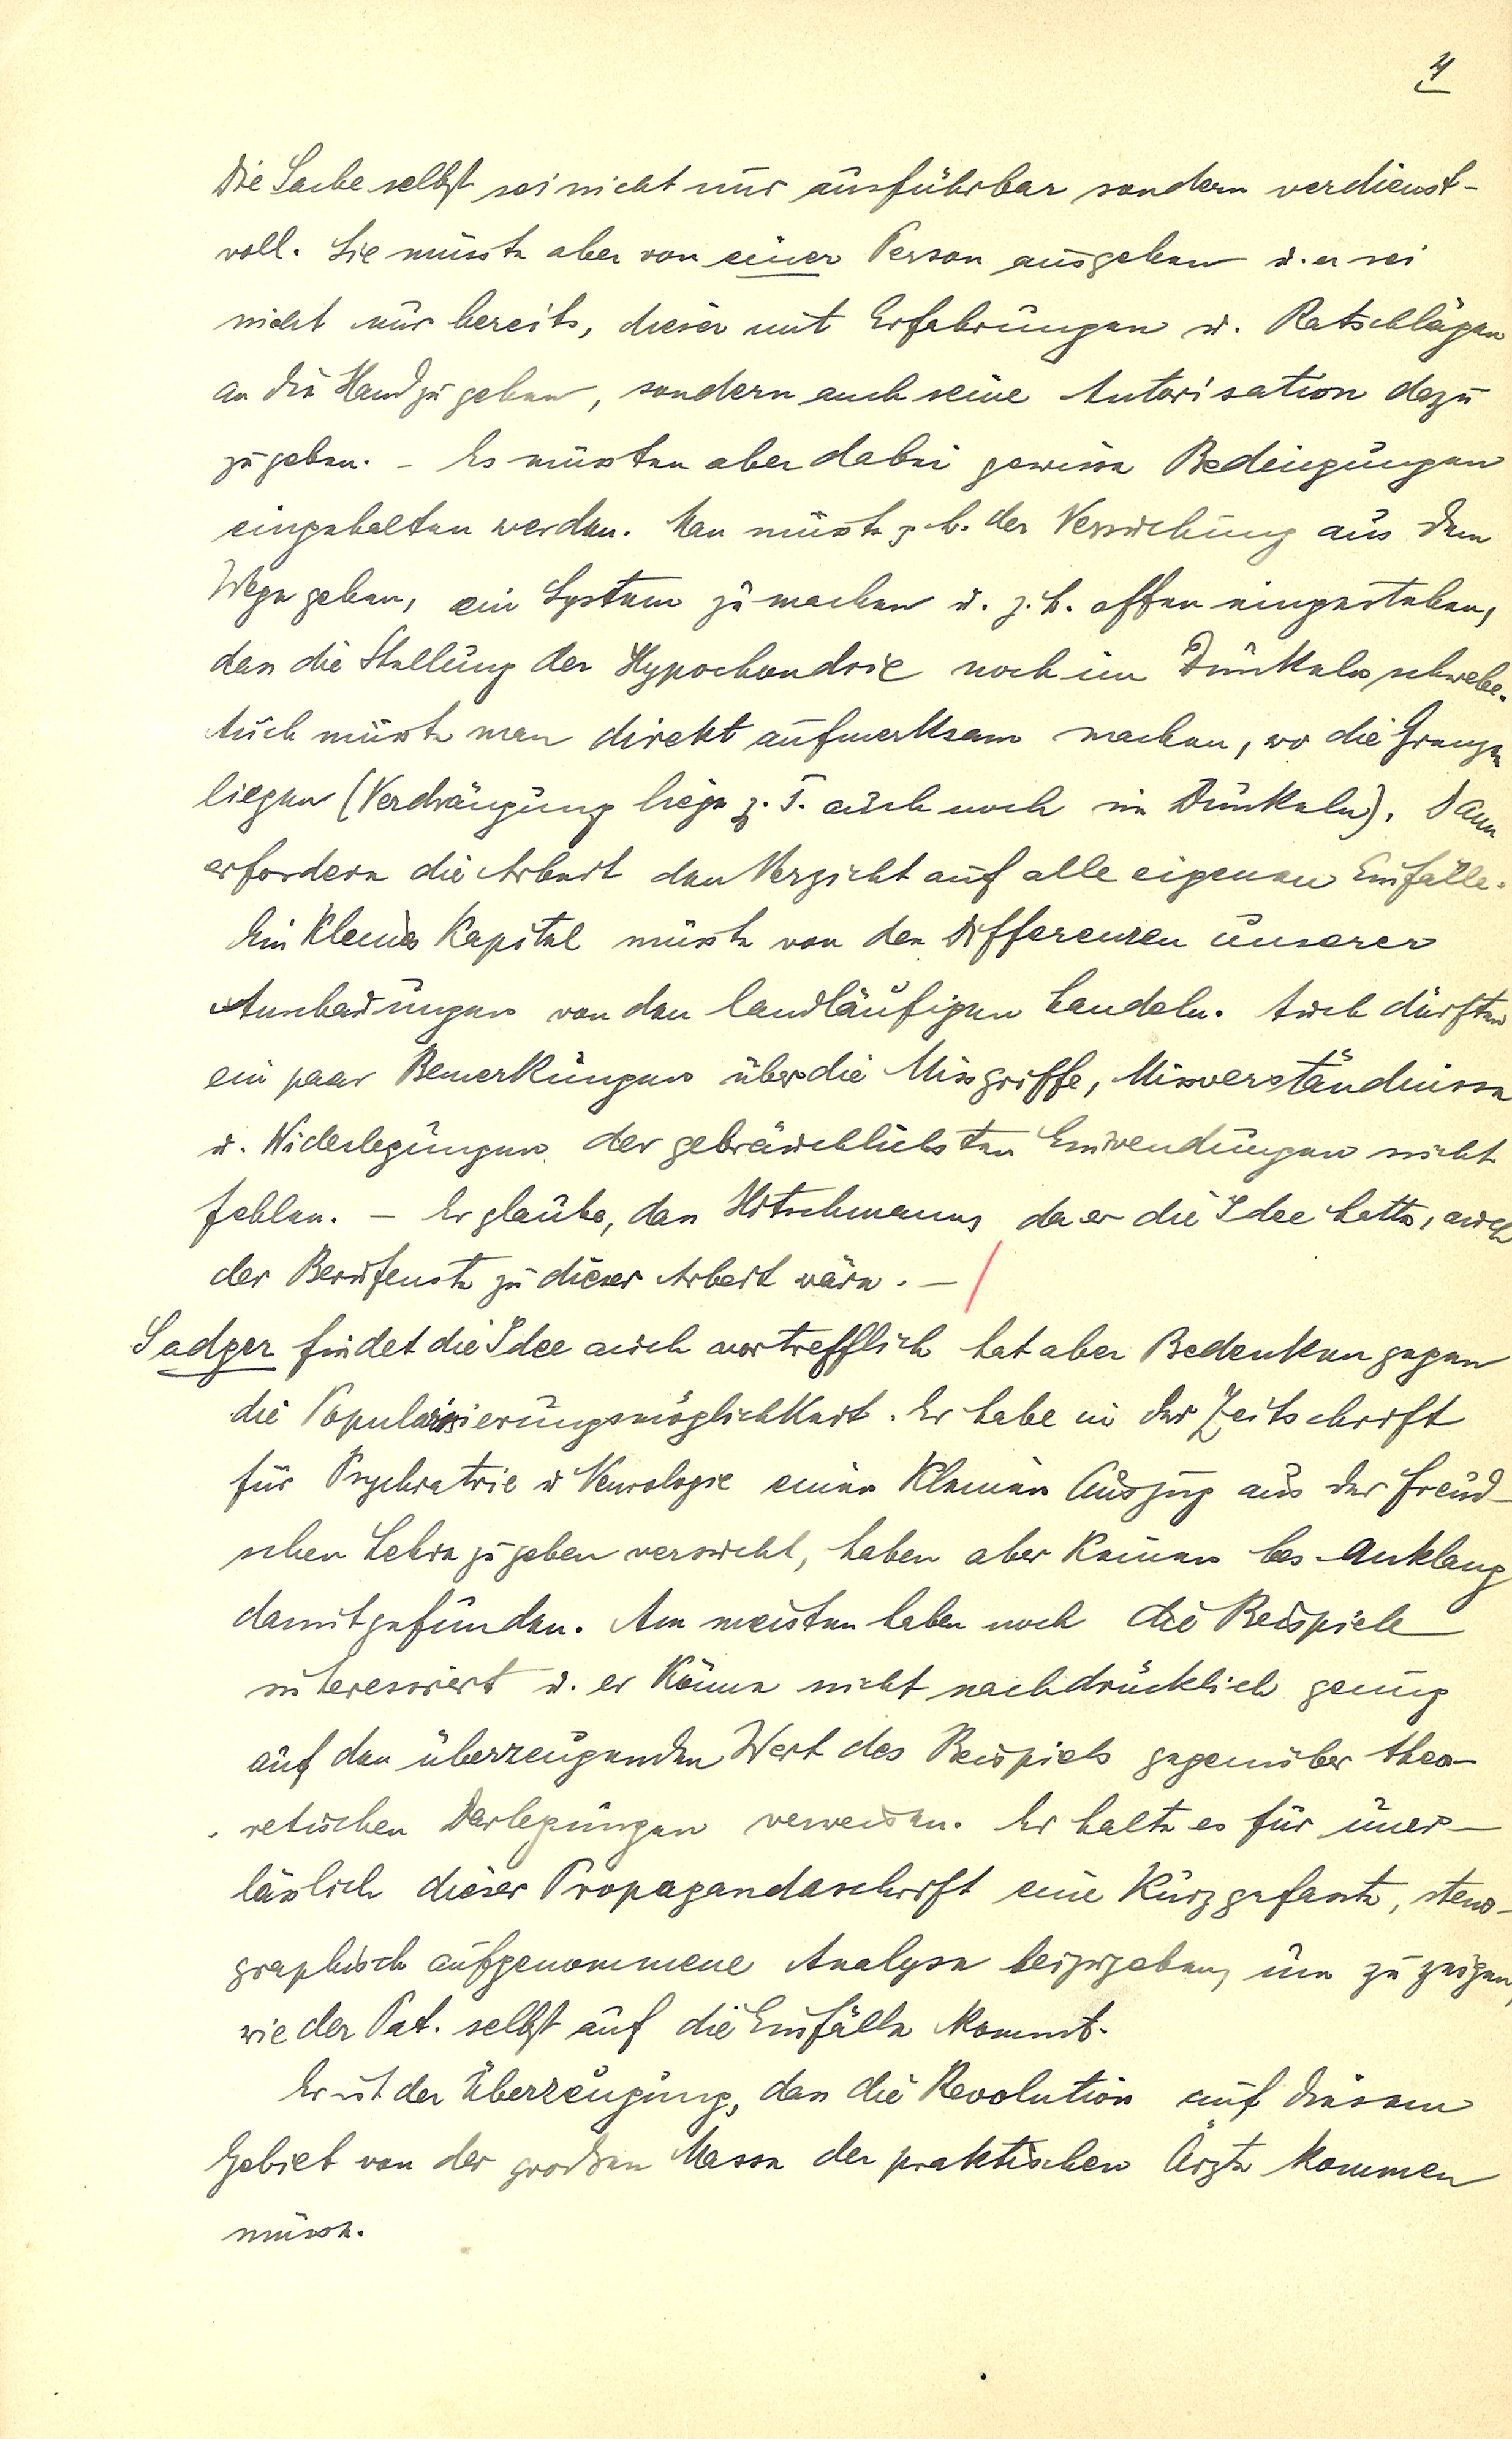 4
Die Sache selbst sei nicht nur ausführbar sondern verdienst-
voll. Sie müsste aber von einer Person ausgehen u. er sei
nicht nur bereit, dieser mit Erfahrungen u. Ratschlägen
an die Hand zu gehen, sondern auch seine Autorisation dazu
zu geben. – Es müssten aber dabei gewisse Bedingungen
eingehalten werden. Man müsste z. b. der Versuchung aus dem
Wege gehen, ein System zu machen u. z. b. offen eingestehen,
dass die Stellung der Hypochondrie noch im Dunkeln schwebe.
Auch müsste man direkt aufmerksam machen, wo die Grenzen
liegen (Verdrängung liege z. T. auch noch im Dunkeln). Dann
erfordere die Arbeit den Verzicht auf alle eigenen Einfälle.
Ein kleines Kapitel müsste von den Differenzen unserer
Anschauungen von den landläufigen handeln. Auch dürften
ein paar Bemerkungen über die Missgriffe, Missverständnisse
u. Widerlegungen der gebräuchlichsten Einwendungen nicht
fehlen. – Er glaube, dass Hitschmann, da er die Idee hatte, auch
der Berufenste zu dieser Arbeit wäre. –
Sadger findet die Idee auch vortrefflich hat aber Bedenken gegen
die Popularisierungsmöglichkeit. Er habe in der Zeitschrift
für Psychiatrie u Neurologie einen kleinen Auszug aus der Freud-
schen Lehre zu geben versucht, haben aber keinen bes. Anklang
damit gefunden. Am meisten haben noch die Beispiele
interessiert u. er könne nicht nachdrücklich genug
auf den überzeugenden Wert des Beispiels gegenüber theo-
retischen Darlegungen verweisen. Er halte es für uner-
lässlich dieser Propagandaschrift eine kurzgefasste, steno-
graphisch aufgenommene Analyse beizugeben, um zu zeigen,
wie der Pat. selbst auf die Einfälle kommt.
Er ist der Überzeugung, dass die Revolution auf diesem
Gebiet von der grossen Masse der praktischen Ärzte kommen
müsse.